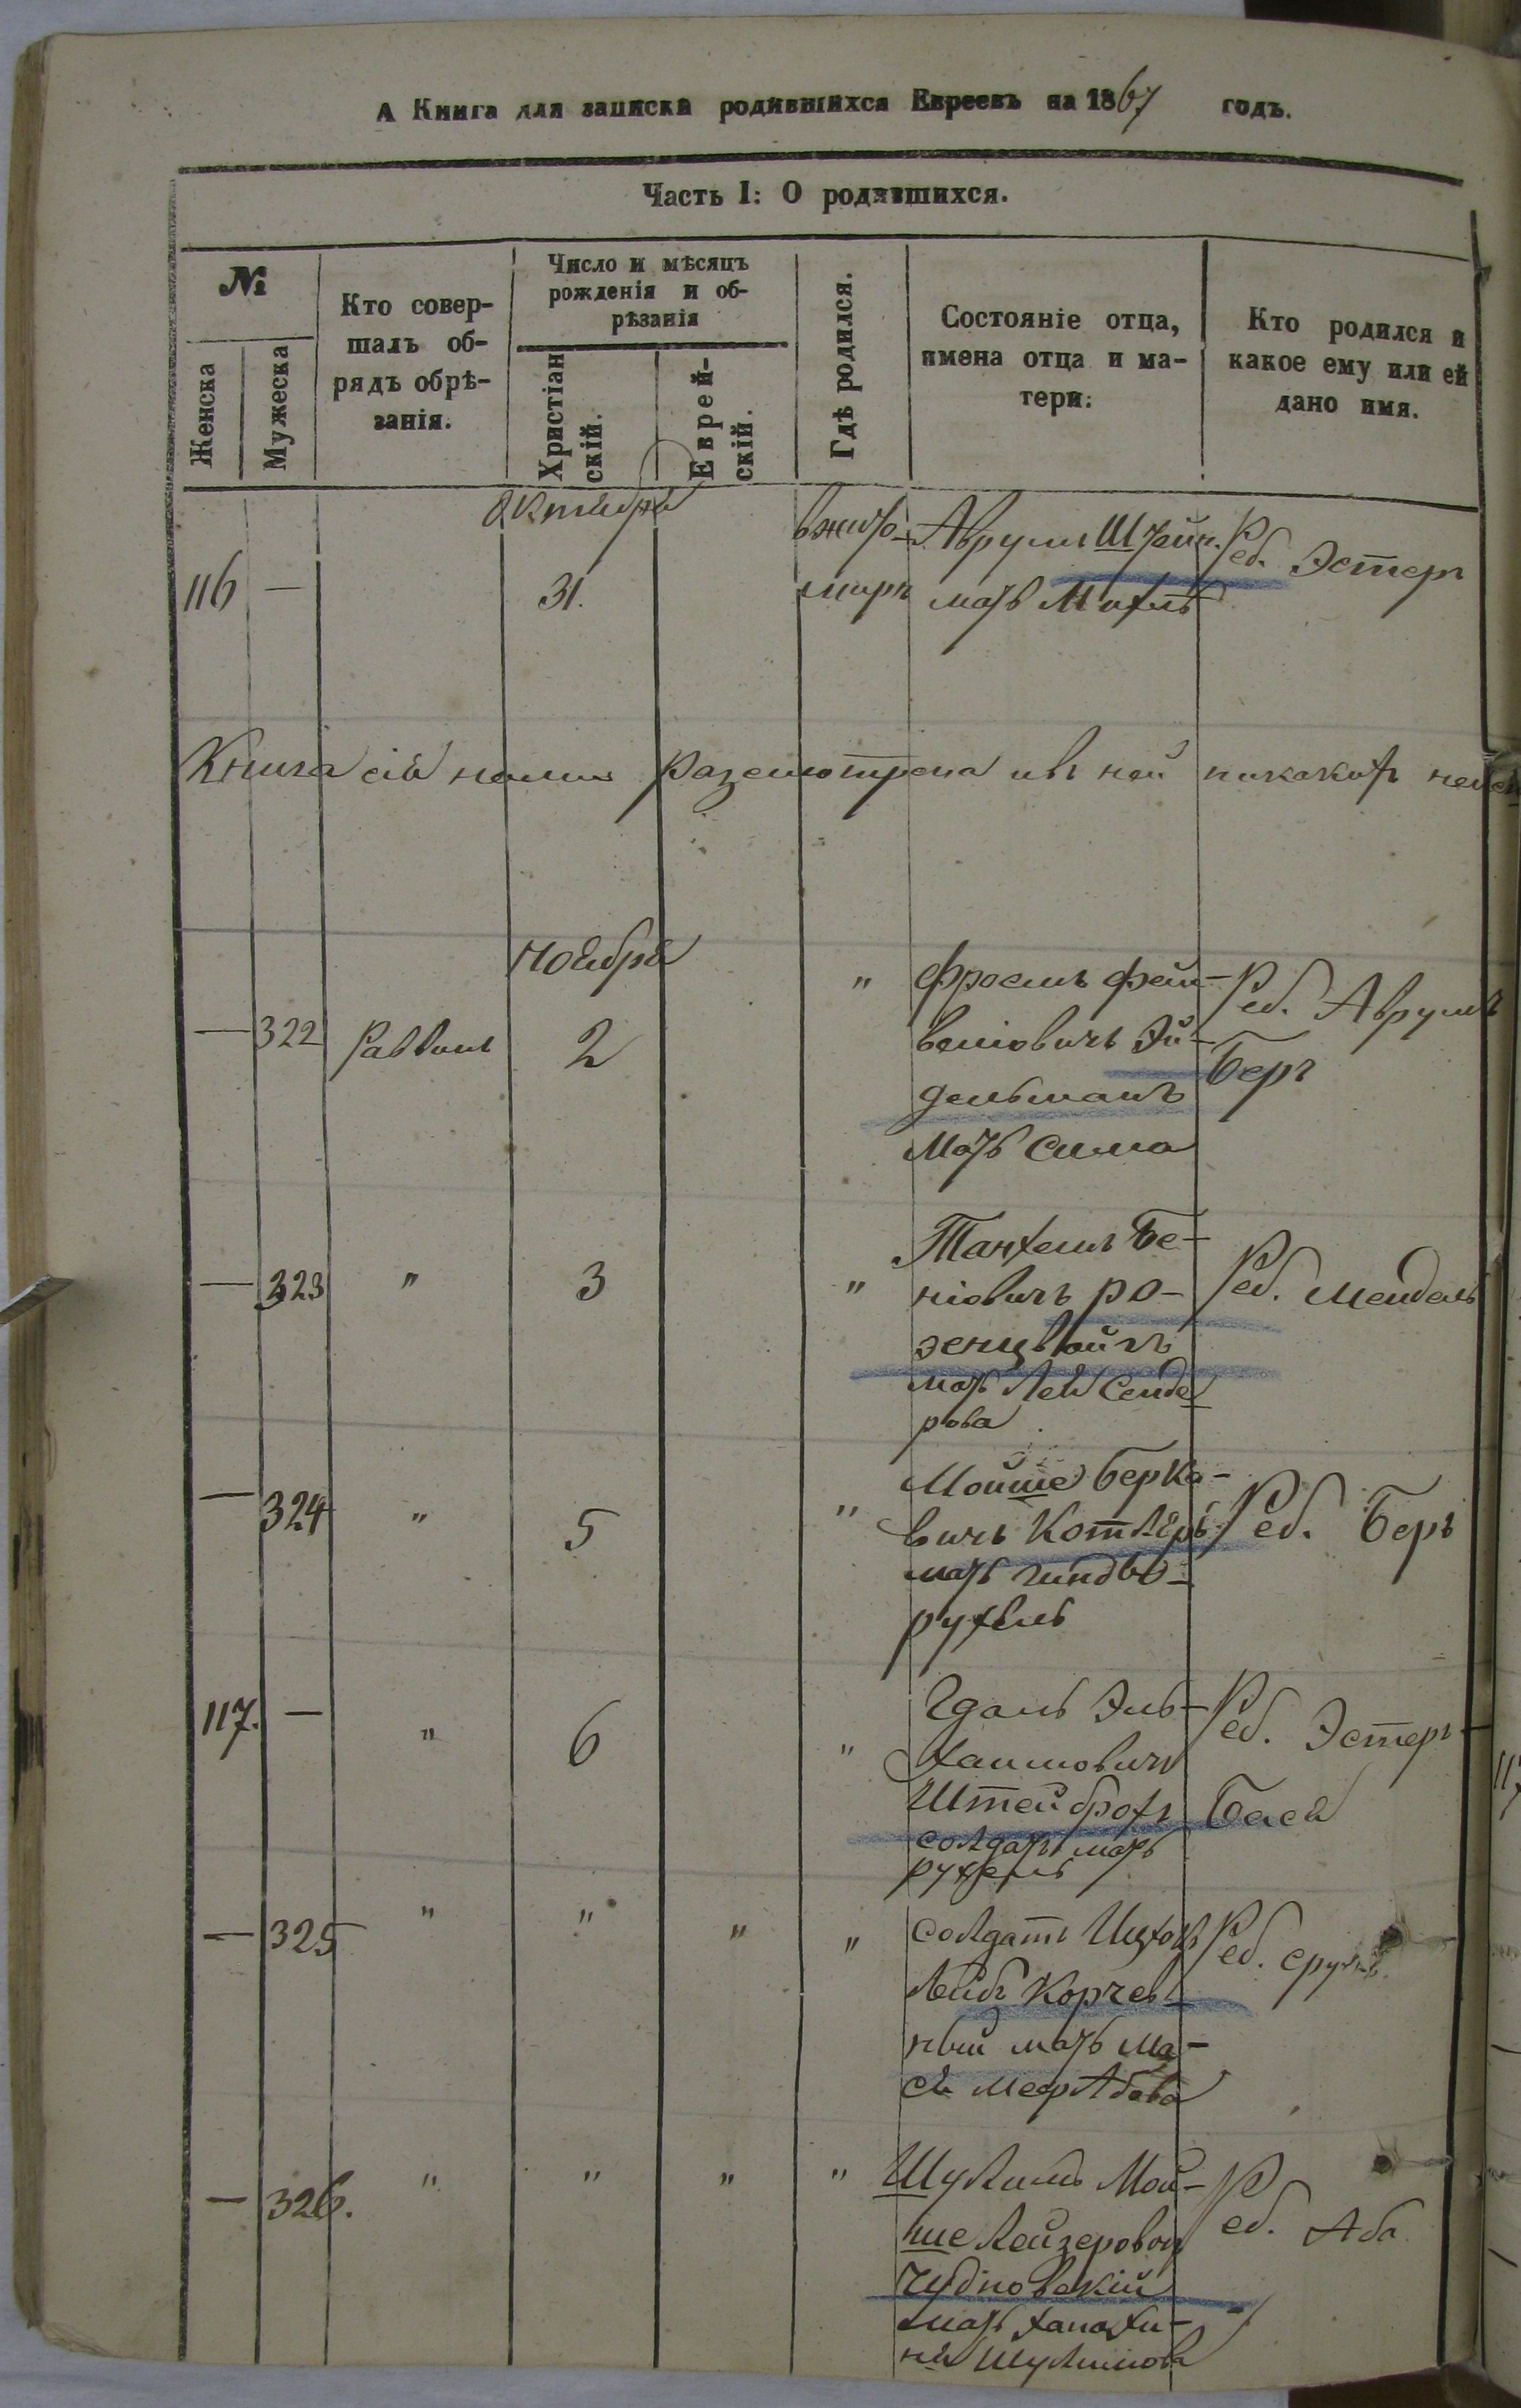 А Книга для записки родившихся Евреевъ на 1867 годъ.
Часть I: О родившихся.
№
Женска
Мужеска
Кто совер-
шалъ об-
рядъ обрѣ-
занія.
Число и мѣсяцъ
рожденія и об-
рѣзанія
Христіан
скій.
Еврей-
скій.
Гдѣ родился.
Состояніе отца,
имена отца и ма-
тери.
Кто родился и
какое ему или ей
дано имя.
Октября
116 — 31.
вжито-
миръ
Аврумъ Штейн.
мать Михля
Реб. Эстеръ
Книга сія нами разсмотрена ивъ ней никакихъ
Ноября
— 322 Раввинъ 2 "
Фроемъ Фей-
веліовичъ Эй-
дельманъ
Мать Сима
Реб. Аврумъ
Беръ
— 323 " 3 "
Танхемъ Бе-
ніовичъ ро-
зенцвайгъ
мать Лея Сенде
рова
Реб. Мендель
— 324 " 5 "
Мойше Берко-
вичъ Котлеръ
мать
рухель
Реб. Беръ
117. — " 6 "
Гдаль Эль-
хаимовичъ
Штейброхъ
солдатъ мать
рухель
Реб. Эстеръ-
Бася
— 325 " " " "
солдатъ Ицхокъ
Лейбъ Корчев-
ный мать Ма-
ся
Реб. Сруль.
— 326. " " " "
Шулимъ Мой-
ше Лейзеровоч
Чудновскій
мать Хана Хи-
ня Шулимова
Реб. Аба